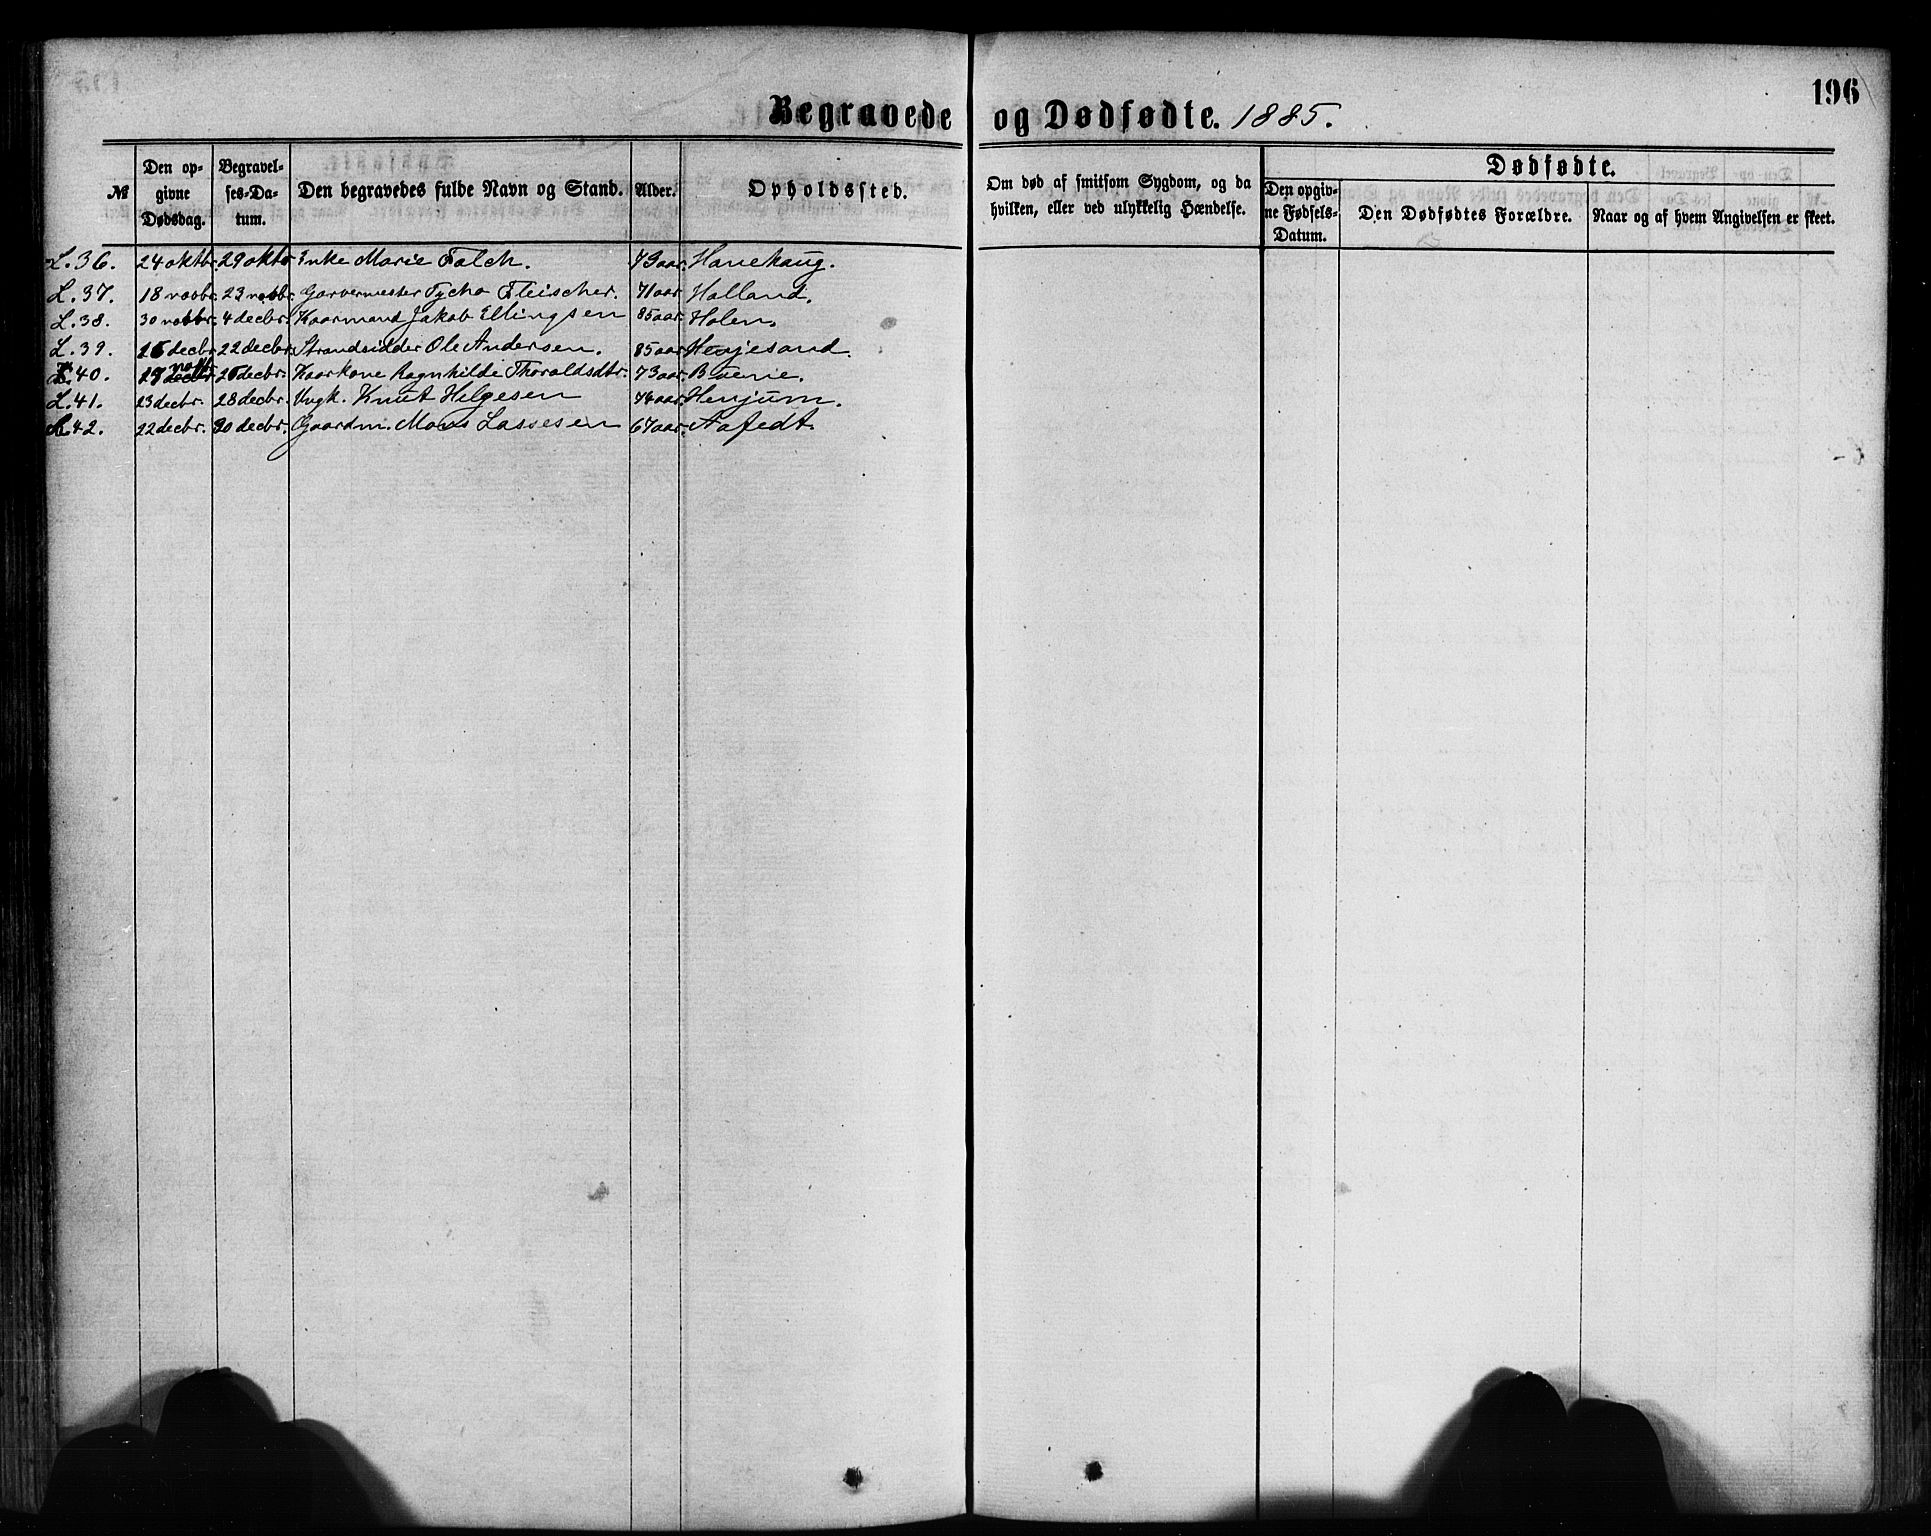 196
Begravede og Dødfødte. 1885.
№ Den opgivne Dødsdag. Begravelses-Datum. Den begravedes fulde Navn og Stand. Alder. Opholdssted. Om død af smitsom Sygdom, og da hvilken, eller ved ulykkelig Hændelse. Dødfødte. Den opgivne Fødsels-Datum. Den Dødfødtes Forældre. Naar og af hvem Angivelsen er skeet.
L. 36. 24 oktbr. 29 oktb Enke Marie Falch. 79 aar. Hanehaug.
L. 37. 18 novbr. 23 novbr. Garvermester Tycho Fleischer. 71 aar Halland.
L. 38. 30 novbr. 4 decbr. Kaarmand Jakob Ellingsen 85 aar. Holen.
L. 39. decbr. 22 decbr. Strandsidder Ole Andersen. 85 aar Henjesand.
L. 40. decbr. Kaarkone Ragnhilde Thoraldsdtr. 73 aar.
L. 41. 23 decbr. 28 decbr. Ungk. Knut Helgesen aar. Henjum.
42. 22 decbr. 30 decbr. Gaardm. Mons Lassesen 67 aar. Aafedt.